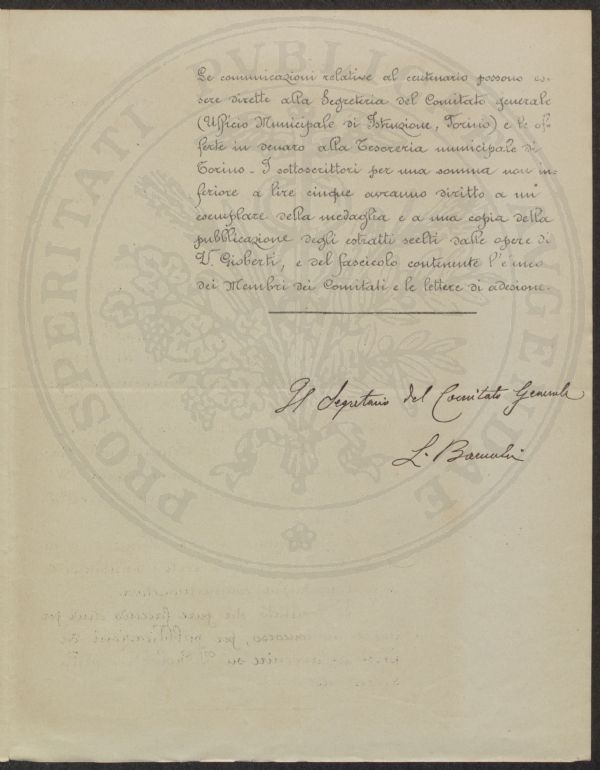 Le comunicazioni relative al centenario possono es-
sere dirette alla Segreteria del Comitato generale
(Ufficio Municipale di Istruzione, Torino) e le of-
ferte in denaro alla Tesoreria municipale di
Torino - I sottoscrittori per una somma non in-
feriore a lire cinque avranno diritto a un
esemplare della medaglia e a una copia della
pubblicazione degli estratti scelti dalle opere di
V. Gioberti, e del fascicolo contenente l'elenco
dei Membri dei Comitati e le lettere di adesione.
Il Segretario del Comitato Generale
L.
PROSPERITATI PVBLICAE AVGENDAE